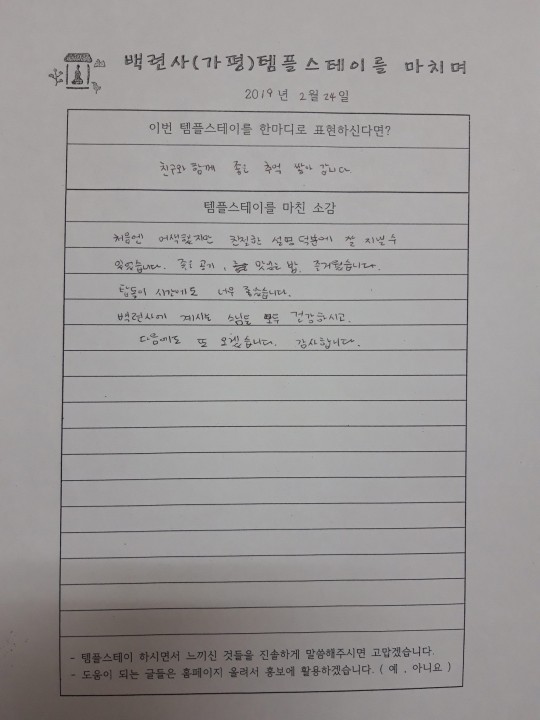 백련사(가평)템플스테이를 마치며
2019년 2월 24일
이번 템플스테이를 한마디로 표현하신다면?
친구와 함께 좋은 추억 쌓아 갑니다.
템플스테이를 마친 소감
처음엔 어색했지만 친절한 설명 덕분에 잘 지낼 수
있었습니다. 좋은 공기, 맛있는 밥. 즐거웠습니다.
시간에도 너무 좋았습니다.
백련사에 계시는 스님들 모두 건강하시고.
다음에도 또 오겠습니다. 감사합니다.
- 템플스테이 하시면서 느끼신 것들을 진솔하게 말씀해주시면 고맙겠습니다.
- 도움이 되는 글들은 홈페이지 올려서 홍보에 활용하겠습니다. ( 예 , 아니요 )